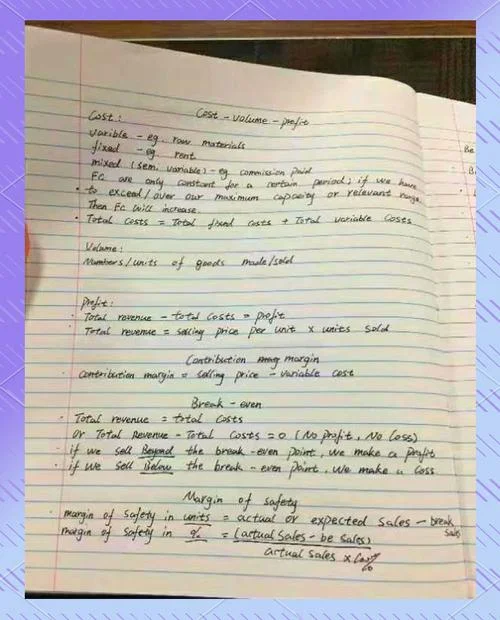 Cost - volume - profit
Cost:
varible - eg. raw materials
fixed - eg. rent
mixed (sem. variable) - eg commission paid
FC are only constant for a certain period, if we have
to exceed/over our maximum capacity or relevant range
Then FC will increase.
· Total costs = Total fixed costs + Total variable costs
Volume:
Numbers/units of goods made/sold
Profit:
· Total revenue - total costs = profit
Total revenue = selling price per unit x units sold
Contribution margin
· contribution margin = selling price - variable cost
Break - even
· Total revenue = total costs
or Total Revenue - Total costs = 0 (No profit, No Loss)
· if we sell Beyond the break - even point, we make a profit
· if we sell Below the break - even point, we make a Loss
Margin of safety
· margin of safety in units = actual or expected sales - break
sales
margin of safety in % = (actual sales - be sales)
actual sales x
Be